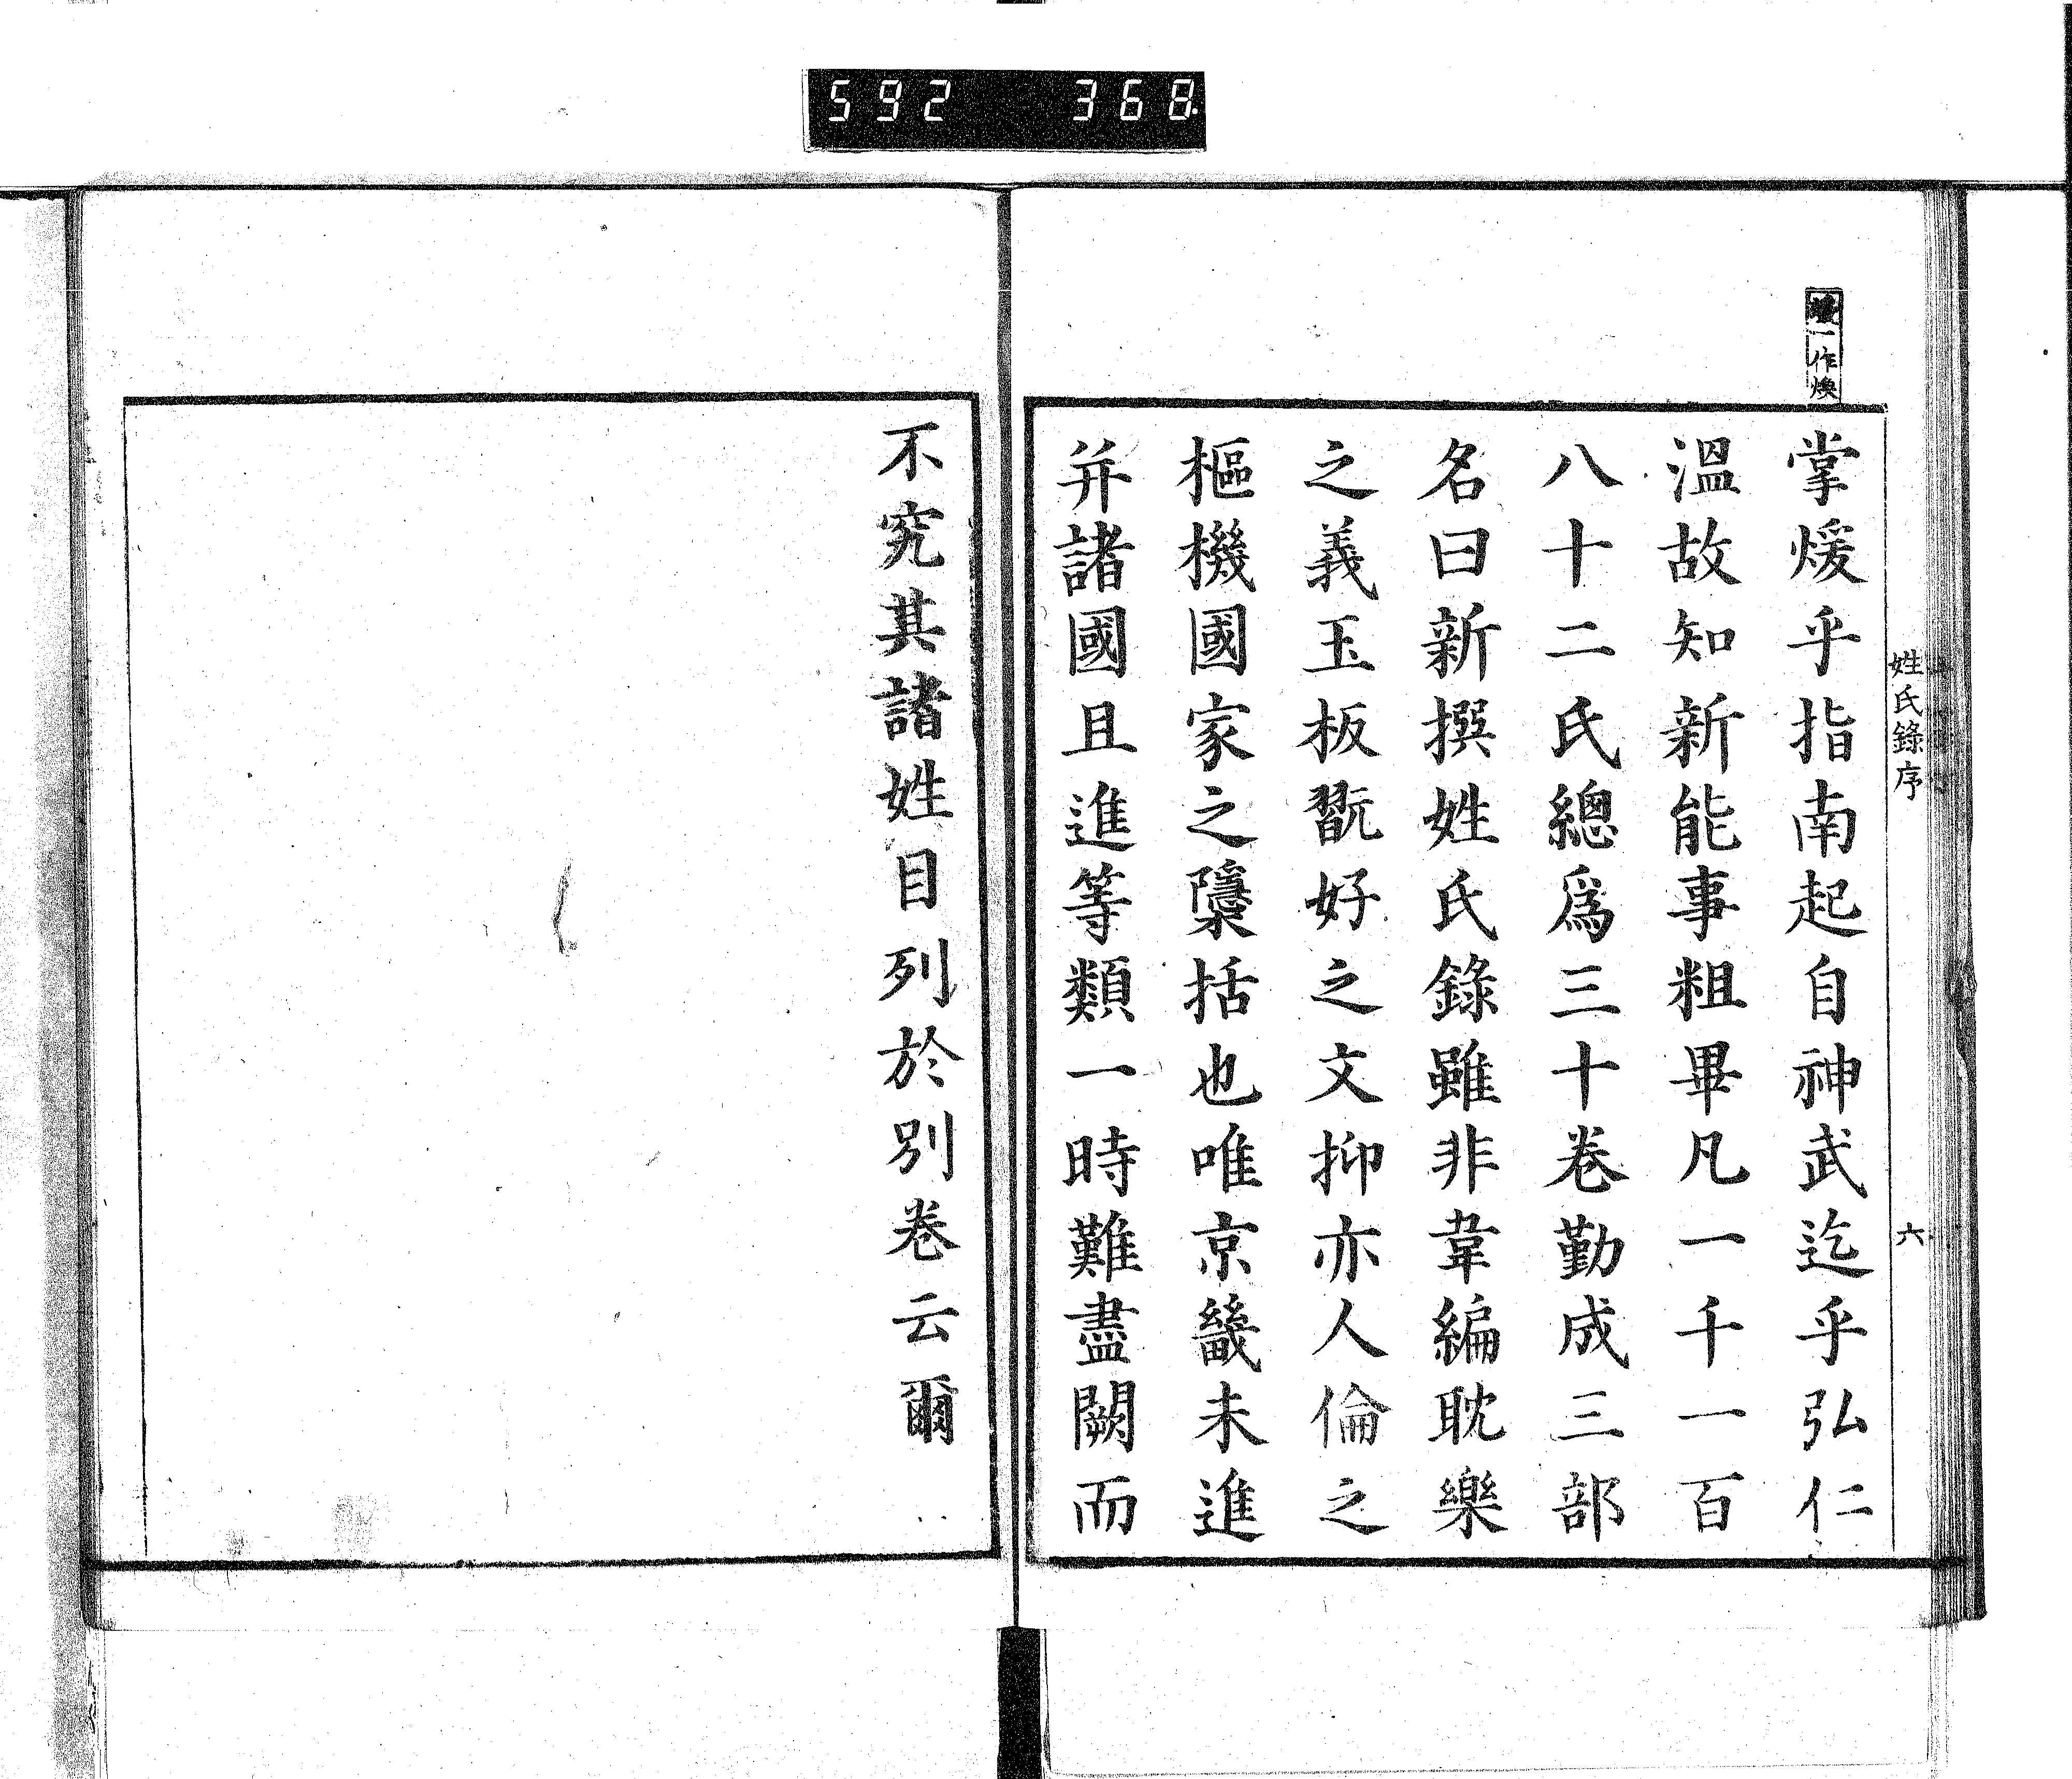 592 368.
一作煥
姓氏錄序
六
掌煖乎指南起自神武迄乎弘仁
溫故知新能事粗畢凡一千一百
八十二氏總爲三十卷勤成三部
名曰新撰姓氏錄雖非韋編耽樂
之義玉板翫好之文抑亦人倫之
樞機國家之櫽括也唯京畿未進
并諸國且進等類一時難盡闕而
不究其諸姓目列於別卷云爾